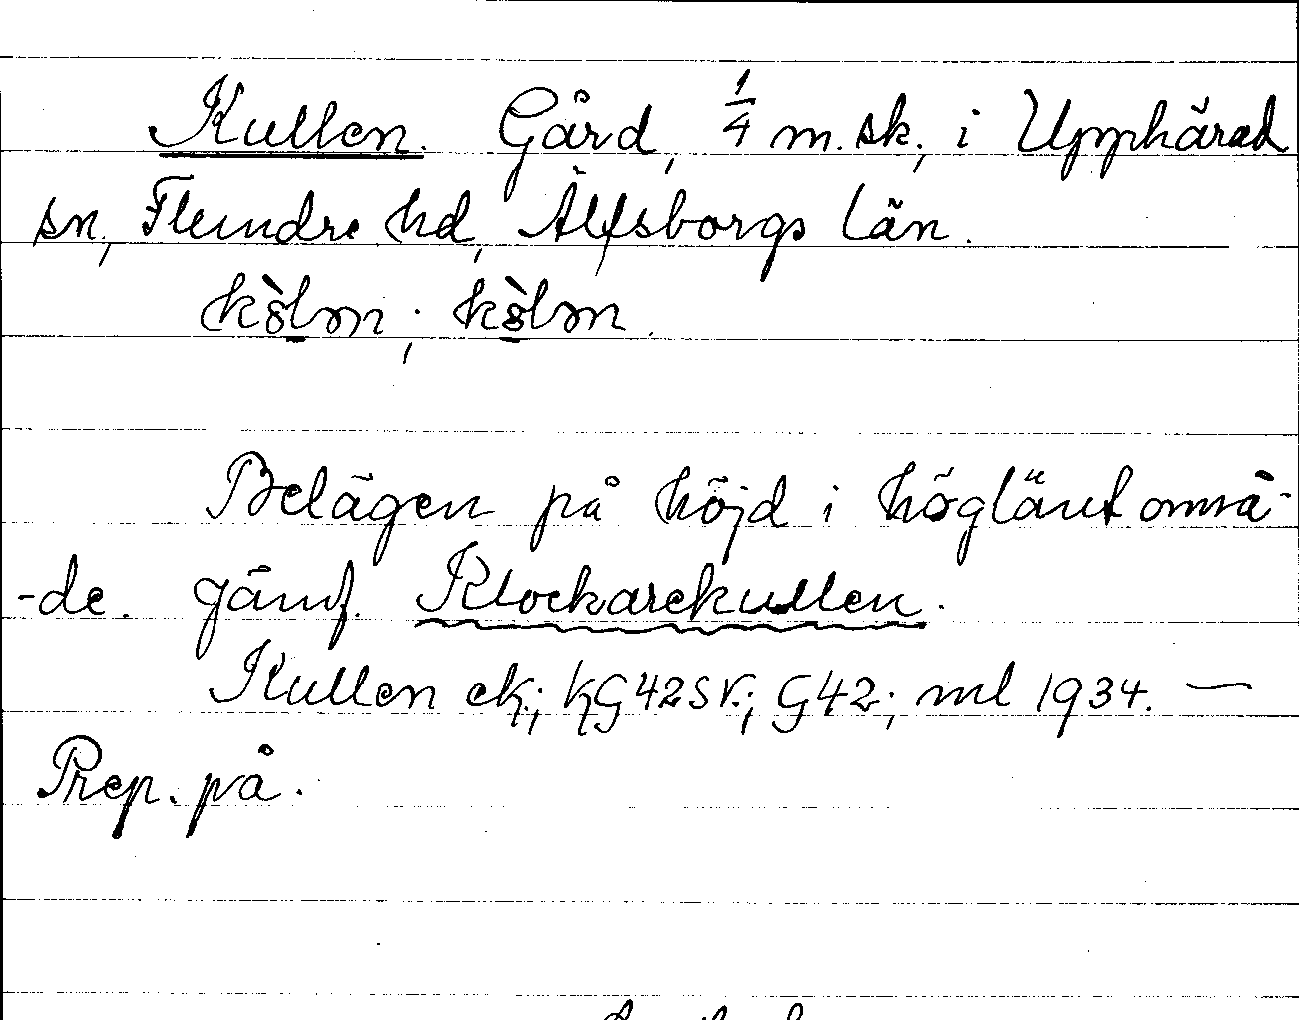 Kullen. Gård, 1/4 m. sk., i Upphärad
sn, Flundre hd, Älfsborgs län.
Belägen på höjd i högländt områ-
-de. Jämf. Klockarekullen.
Kullen ek.; KG42SV.; G42; ml 1934. —
Prep. på.